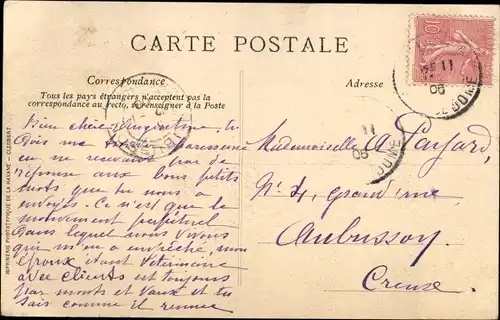 CARTE POSTALE
Correspondance
Adresse
Tous les pays étrangers n'acceptent pas la
correspondance au recto, se renseigner à la Poste
Bien chère Augustine, tu
Dois me trouver paresseuse
en ne recevant pas de
réponse aux bons petits
mots que tu nous a
envoyés. Ce n'est que le
mouvement perpétuel
Dans lequel nous vivons
qui m'en a empêché, mon
Époux étant Vétérinaire
avec clients est toujours
par monts et vaux et tu
sais comme il remue
Mademoiselle A.
No 4, grand'rue
Aubusson
Creuse.
IMPRIMERIE PHOTOTYPIQUE DE LA HAVANE - CLERMONT
10
11
06
DOME
11
06
DOME